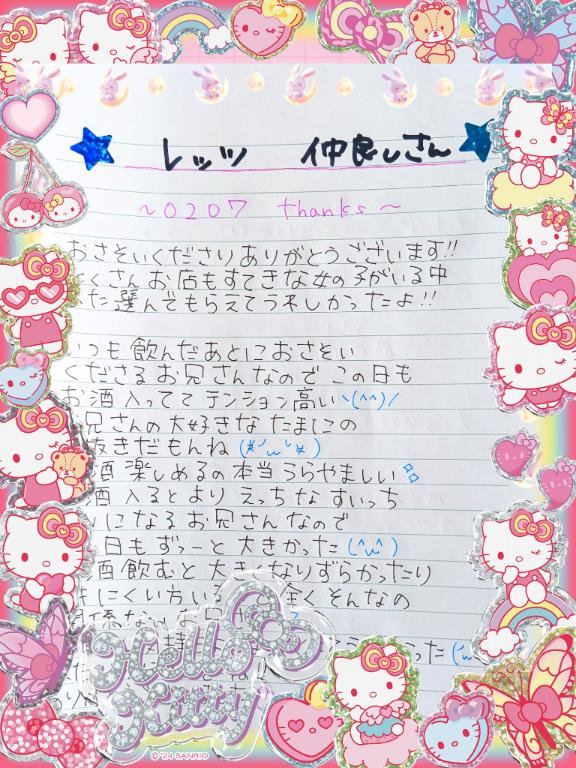 レッツ 仲良しさん
~0207 thanks~
おさそいくださりありがとうございます!!
くさんお店もすてきな女の子がいる中
た選んでもらえてうれしかったよ!!
つも飲んだあとにおさそい
くださるお兄さんなのでこの日も
お酒入っててテンション高いヽ(^^)/
兄さんの大好きなたまにの
抜きだもんね(*'ω'*)
酒楽しめるの本当うらやましい
酒入るとよりえっちなすいっち
になるお兄さんなので
日もずーっと大きかった(^ω^)
酒飲むと大きくなりずらかったり
にくい方いる 全くそんなの
った('ω
Hello Kitty
©'24 SANRIO